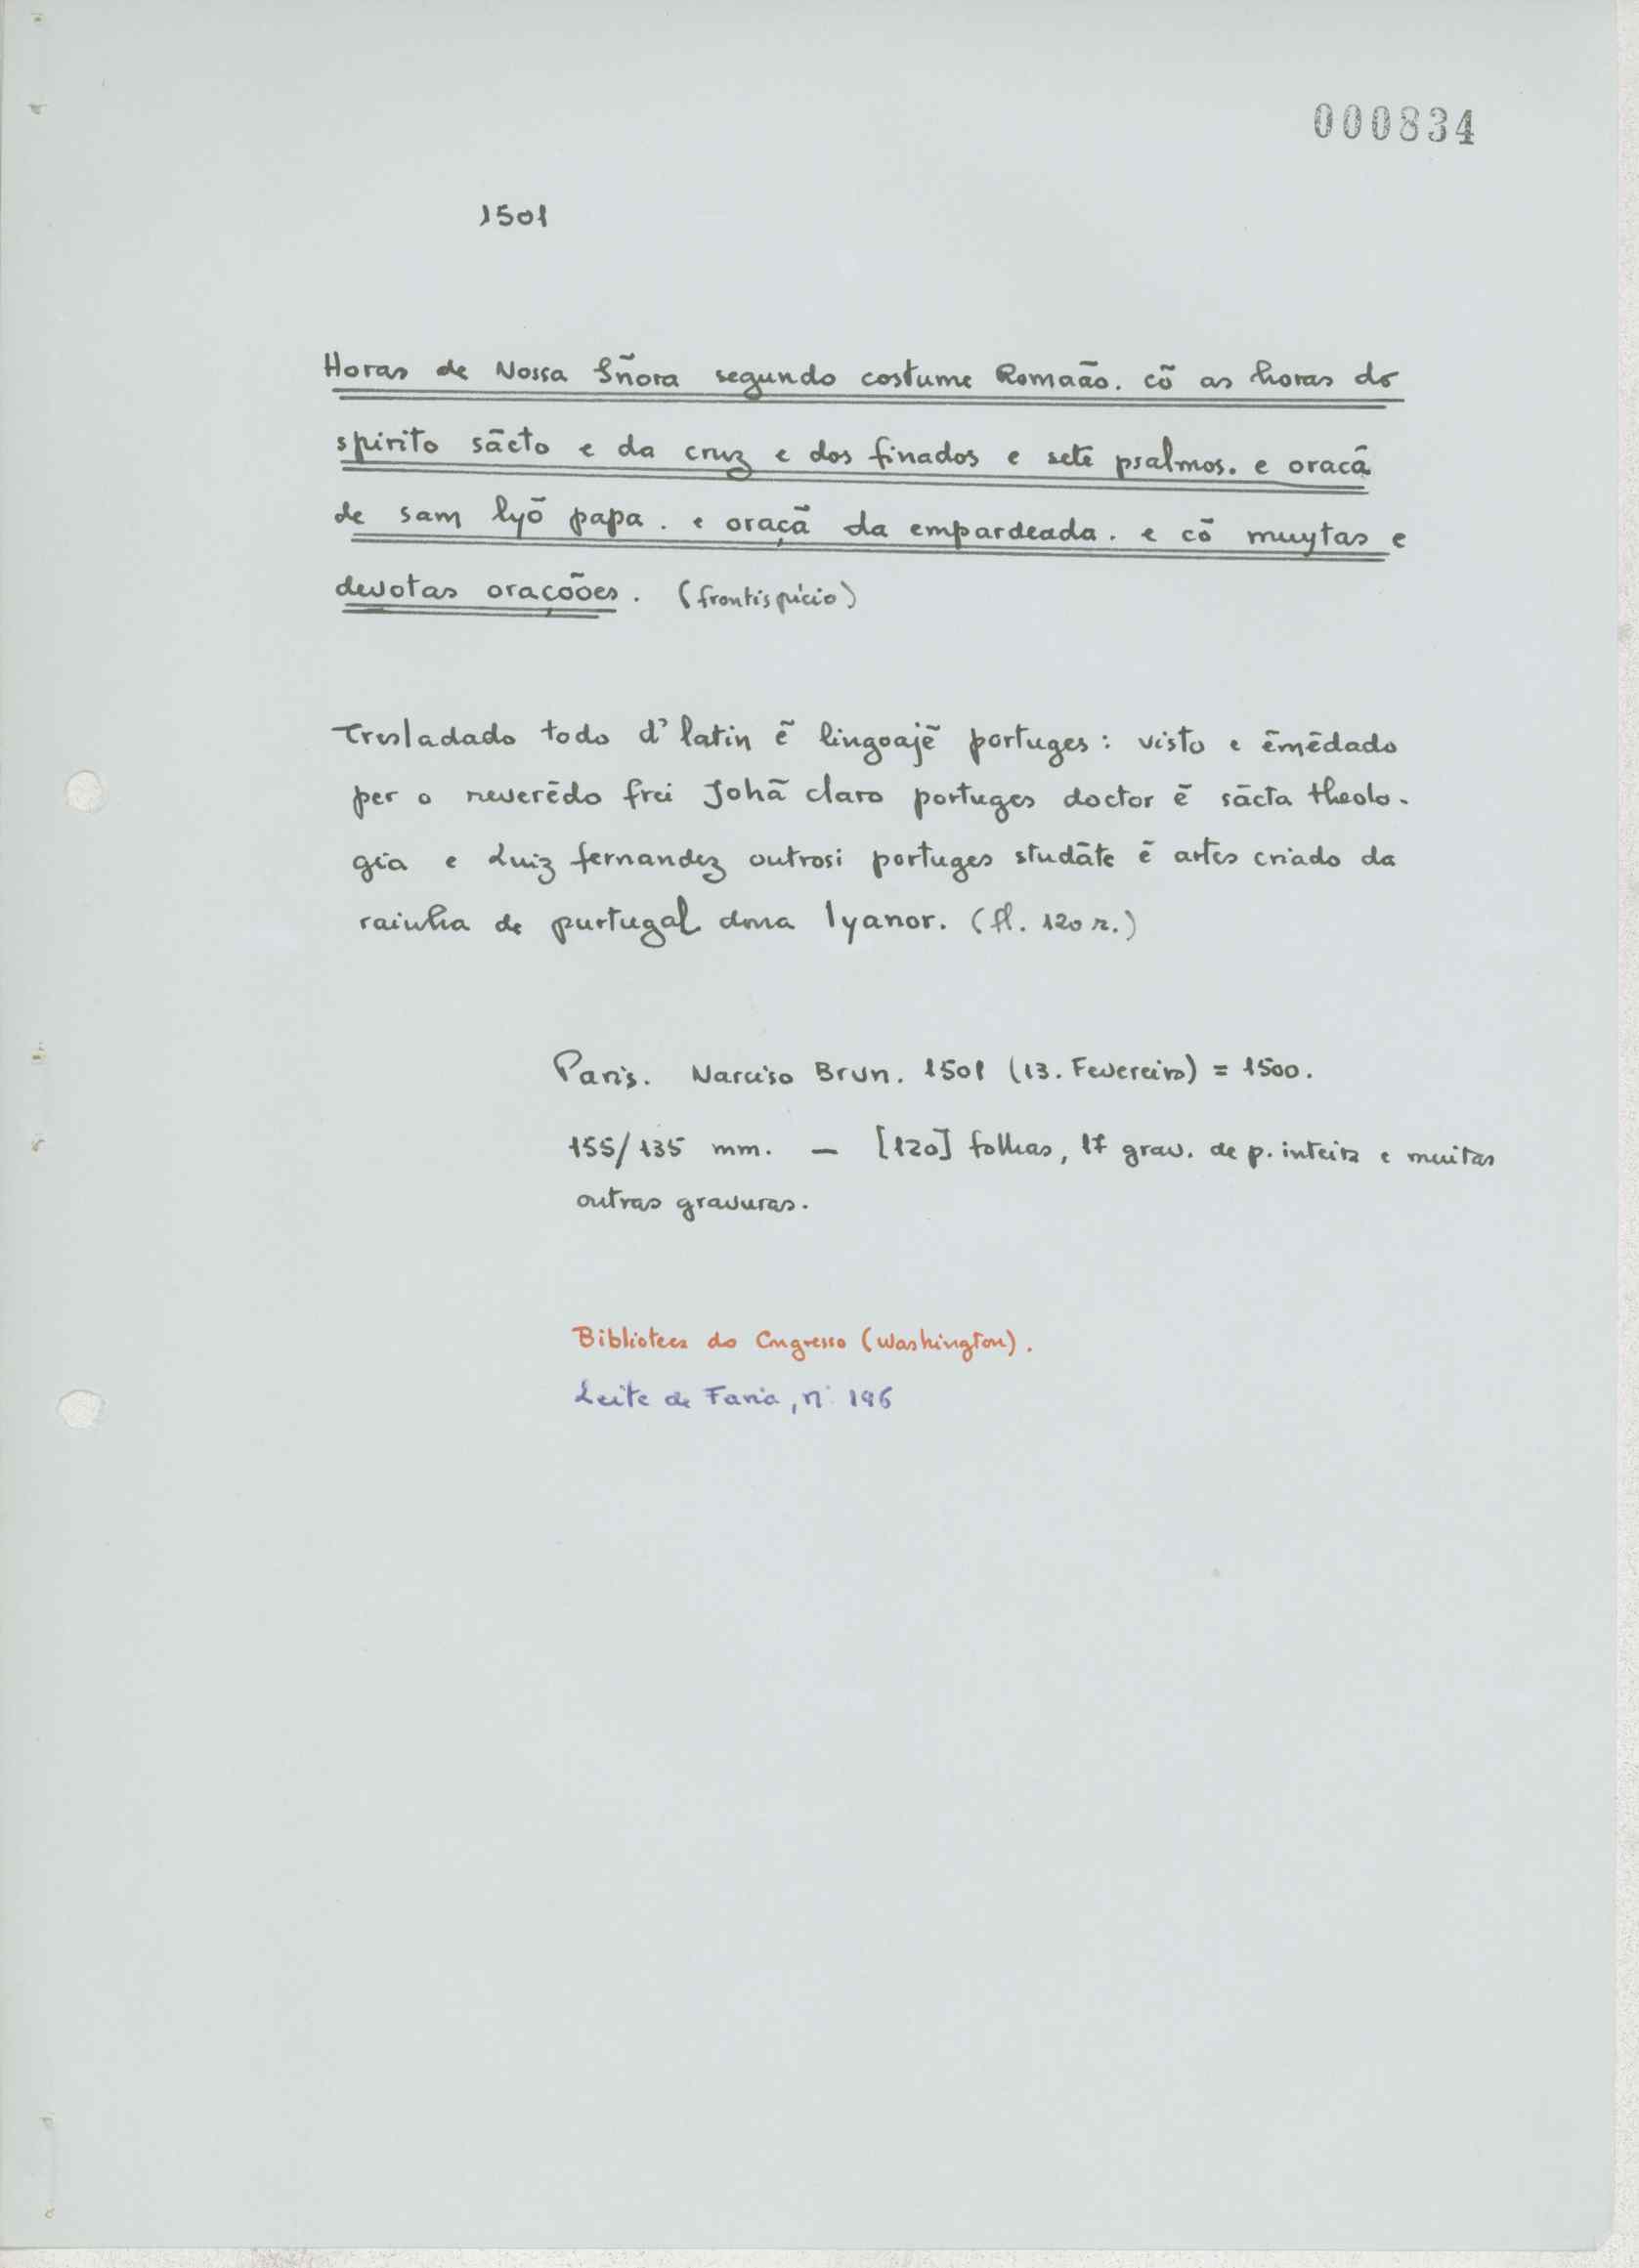 000834
1501
Horas de Nossa Sñora segundo costume Romaão. cõ as horas do
spirito sãcto e da cruz e dos finados e sete psalmos. e oracã
de sam lyõ papa. e oraçã da empardeada. e cõ muytas e
devotas oraçõões. (frontispício)
Tresladado todo d' latin ẽ lingoajẽ portuges: visto e ẽmẽdado
per o reverẽdo frei Johã claro portuges doctor ẽ sãcta theolo-
gia e Luiz fernandez outrosi portuges studãte ẽ artes criado da
rainha de purtugal dona lyanor. (fl. 120 r.)
Paris. Narciso Brun. 1501 (13. Fevereiro) = 1500.
155/135 mm. — [120] folhas, 17 grav. de p. inteira e muitas
outras gravuras.
Biblioteca do Congresso (Washington).
Leite de Faria, n. 196